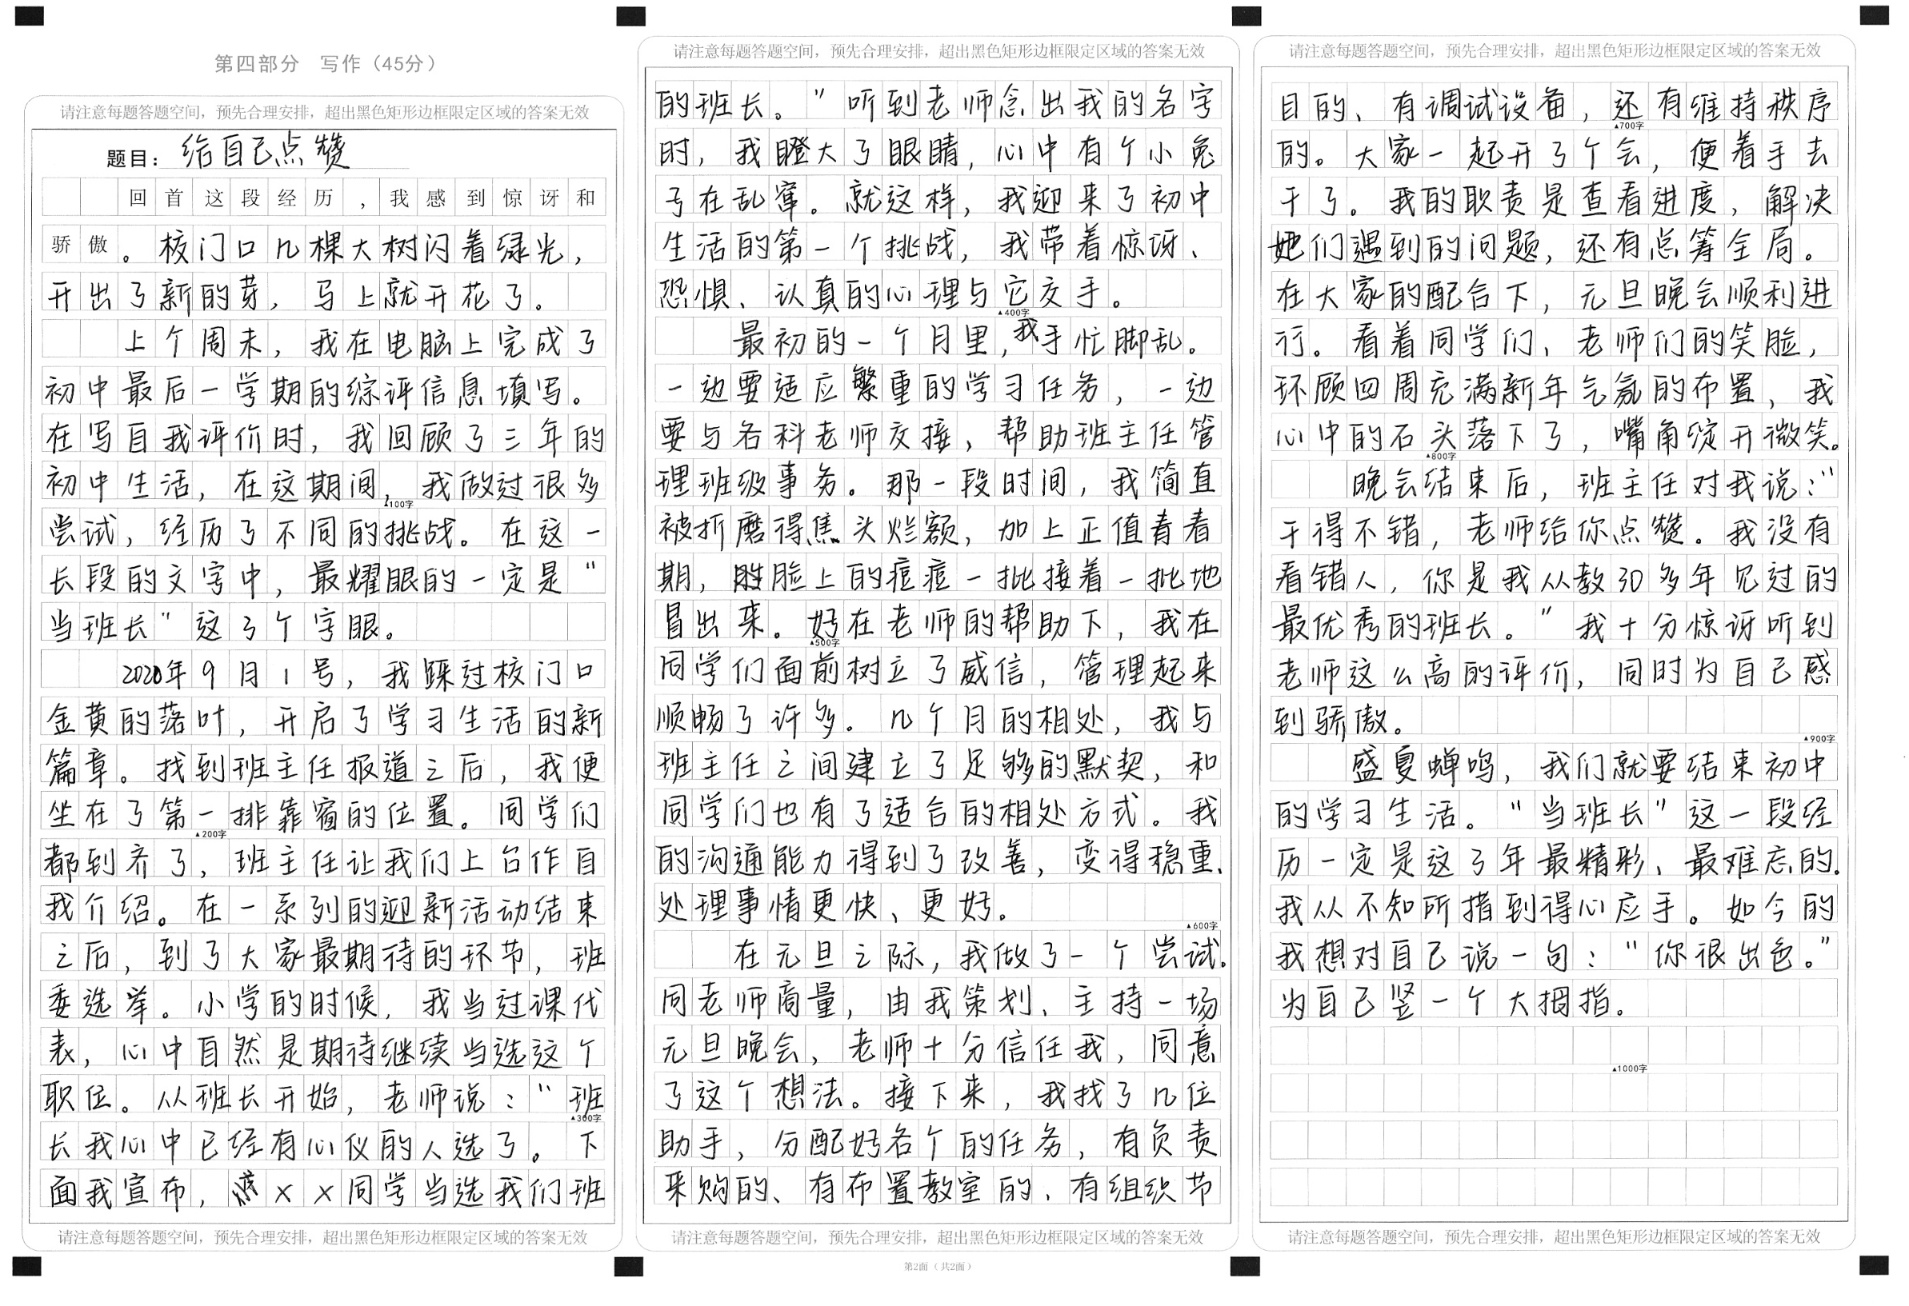 第四部分 写作（45分）
请注意每题答题空间，预先合理安排，超出黑色矩形边框限定区域的答案无效
题目：给自己点赞
回首这段经历，我感到惊讶和
骄傲。校门口几棵大树闪着绿光，
开出了新的芽，马上就开花了。
上个周末，我在电脑上完成了
初中最后一学期的综评信息填写。
在写自我评价时，我回顾了三年的
初中生活，在这期间，我做过很多
▲100字
尝试，经历了不同的挑战。在这一
长段的文字中，最耀眼的一定是“
当班长”这3个字眼。
2020年9月1号，我踩过校门口
金黄的落叶，开启了学习生活的新
篇章。找到班主任报道之后，我便
坐在了第一排靠窗的位置。同学们
▲200字
都到齐了，班主任让我们上台作自
我介绍。在一系列的迎新活动结束
之后，到了大家最期待的环节，班
委选举。小学的时候，我当过课代
表，心中自然是期待继续当选这个
职位。从班长开始，老师说：“班
▲300字
长我心中已经有心仪的人选了。下
面我宣布，××同学当选我们班
请注意每题答题空间，预先合理安排，超出黑色矩形边框限定区域的答案无效
请注意每题答题空间，预先合理安排，超出黑色矩形边框限定区域的答案无效
的班长。”听到老师念出我的名字
时，我瞪大了眼睛，心中有个小兔
子在乱窜。就这样，我迎来了初中
生活的第一个挑战，我带着惊讶、
恐惧、认真的心理与它交手。
▲400字
最初的一个月里，我手忙脚乱。
一边要适应繁重的学习任务，一边
要与各科老师交接，帮助班主任管
理班级事务。那一段时间，我简直
被折磨得焦头烂额，加上正值青春
期，脸上的痘痘一批接着一批地
冒出来。好在老师的帮助下，我在
▲500字
同学们面前树立了威信，管理起来
顺畅了许多。几个月的相处，我与
班主任之间建立了足够的默契，和
同学们也有了适合的相处方式。我
的沟通能力得到了改善，变得稳重、
处理事情更快、更好。
▲600字
在元旦之际，我做了一个尝试。
同老师商量，由我策划、主持一场
元旦晚会，老师十分信任我，同意
了这个想法。接下来，我找了几位
助手，分配好各个的任务，有负责
采购的、有布置教室的、有组织节
请注意每题答题空间，预先合理安排，超出黑色矩形边框限定区域的答案无效
第2面（共2面）
请注意每题答题空间，预先合理安排，超出黑色矩形边框限定区域的答案无效
目的、有调试设备，还有维持秩序
▲700字
的。大家一起开了个会，便着手去
干了。我的职责是查看进度，解决
她们遇到的问题，还有总筹全局。
在大家的配合下，元旦晚会顺利进
行。看着同学们、老师们的笑脸，
环顾四周充满新年气氛的布置，我
心中的石头落下了，嘴角绽开微笑。
▲800字
晚会结束后，班主任对我说：“
干得不错，老师给你点赞。我没有
看错人，你是我从教30多年见过的
最优秀的班长。”我十分惊讶听到
老师这么高的评价，同时为自己感
到骄傲。
▲900字
盛夏蝉鸣，我们就要结束初中
的学习生活。“当班长”这一段经
历一定是这3年最精彩、最难忘的。
我从不知所措到得心应手。如今的
我想对自己说一句：“你很出色。”
为自己竖一个大拇指。
▲1000字
请注意每题答题空间，预先合理安排，超出黑色矩形边框限定区域的答案无效